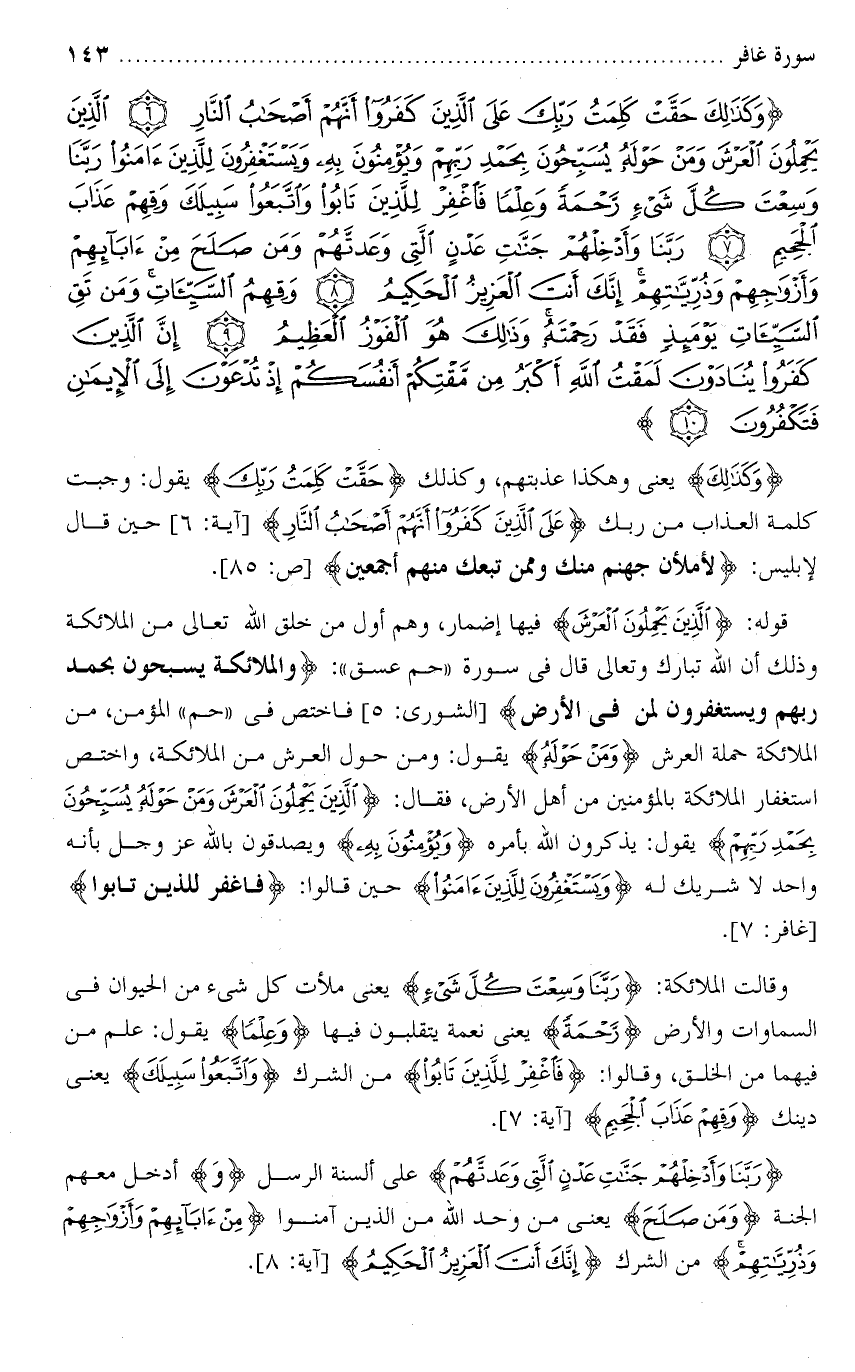 سورة غافر ........................................................................... ١٤٣
﴿وَكَذَٰلِكَ حَقَّتْ كَلِمَتُ رَبِّكَ عَلَى ٱلَّذِينَ كَفَرُوٓا۟ أَنَّهُمْ أَصْحَٰبُ ٱلنَّارِ ٦ ٱلَّذِينَ
يَحْمِلُونَ ٱلْعَرْشَ وَمَنْ حَوْلَهُۥ يُسَبِّحُونَ بِحَمْدِ رَبِّهِمْ وَيُؤْمِنُونَ بِهِۦ وَيَسْتَغْفِرُونَ لِلَّذِينَ ءَامَنُوا۟ رَبَّنَا
وَسِعْتَ كُلَّ شَىْءٍ رَّحْمَةً وَعِلْمًا فَٱغْفِرْ لِلَّذِينَ تَابُوا۟ وَٱتَّبَعُوا۟ سَبِيلَكَ وَقِهِمْ عَذَابَ
ٱلْجَحِيمِ ٧ رَبَّنَا وَأَدْخِلْهُمْ جَنَّٰتِ عَدْنٍ ٱلَّتِى وَعَدتَّهُمْ وَمَن صَلَحَ مِنْ ءَابَآئِهِمْ
وَأَزْوَٰجِهِمْ وَذُرِّيَّٰتِهِمْ ۚ إِنَّكَ أَنتَ ٱلْعَزِيزُ ٱلْحَكِيمُ ٨ وَقِهِمُ ٱلسَّيِّـَٔاتِ ۚ وَمَن تَقِ
ٱلسَّيِّـَٔاتِ يَوْمَئِذٍ فَقَدْ رَحِمْتَهُۥ ۚ وَذَٰلِكَ هُوَ ٱلْفَوْزُ ٱلْعَظِيمُ ٩ إِنَّ ٱلَّذِينَ
كَفَرُوا۟ يُنَادَوْنَ لَمَقْتُ ٱللَّهِ أَكْبَرُ مِن مَّقْتِكُمْ أَنفُسَكُمْ إِذْ تُدْعَوْنَ إِلَى ٱلْإِيمَٰنِ
فَتَكْفُرُونَ ١٠ ﴾
﴿وَكَذَٰلِكَ﴾ يعنى وهكذا عذبتهم، وكذلك ﴿حَقَّتْ كَلِمَتُ رَبِّكَ﴾ يقول: وجبت
كلمة العذاب من ربك ﴿عَلَى ٱلَّذِينَ كَفَرُوٓا۟ أَنَّهُمْ أَصْحَٰبُ ٱلنَّارِ﴾ [آية: ٦] حين قال
لإبليس: ﴿لأملأن جهنم منك وممن تبعك منهم أجمعين﴾ [ص: ٨٥].
قوله: ﴿ٱلَّذِينَ يَحْمِلُونَ ٱلْعَرْشَ﴾ فيها إضمار، وهم أول من خلق الله تعالى من الملائكة
وذلك أن الله تبارك وتعالى قال فى سورة «حم عسق»: ﴿والملائكة يسبحون بحمد
ربهم ويستغفرون لمن فى الأرض﴾ [الشورى: ٥] فاختص فى «حم» المؤمن، من
الملائكة حملة العرش ﴿وَمَنْ حَوْلَهُۥ﴾ يقول: ومن حول العرش من الملائكة، واختص
استغفار الملائكة بالمؤمنين من أهل الأرض، فقال: ﴿ٱلَّذِينَ يَحْمِلُونَ ٱلْعَرْشَ وَمَنْ حَوْلَهُۥ يُسَبِّحُونَ
بِحَمْدِ رَبِّهِمْ﴾ يقول: يذكرون الله بأمره ﴿وَيُؤْمِنُونَ بِهِۦ﴾ ويصدقون بالله عز وجل بأنه
واحد لا شريك له ﴿وَيَسْتَغْفِرُونَ لِلَّذِينَ ءَامَنُوا۟﴾ حين قالوا: ﴿فاغفر للذين تابوا﴾
[غافر: ٧].
وقالت الملائكة: ﴿رَبَّنَا وَسِعْتَ كُلَّ شَىْءٍ﴾ يعنى ملأت كل شىء من الحيوان فى
السماوات والأرض ﴿رَّحْمَةً﴾ يعنى نعمة يتقلبون فيها ﴿وَعِلْمًا﴾ يقول: علم من
فيهما من الخلق، وقالوا: ﴿فَٱغْفِرْ لِلَّذِينَ تَابُوا۟﴾ من الشرك ﴿وَٱتَّبَعُوا۟ سَبِيلَكَ﴾ يعنى
دينك ﴿وَقِهِمْ عَذَابَ ٱلْجَحِيمِ﴾ [آية: ٧].
﴿رَبَّنَا وَأَدْخِلْهُمْ جَنَّٰتِ عَدْنٍ ٱلَّتِى وَعَدتَّهُمْ﴾ على ألسنة الرسل ﴿وَ﴾ أدخل معهم
الجنة ﴿وَمَن صَلَحَ﴾ يعنى من وحد الله من الذين آمنوا ﴿مِنْ ءَابَآئِهِمْ وَأَزْوَٰجِهِمْ
وَذُرِّيَّٰتِهِمْ ۚ﴾ من الشرك ﴿إِنَّكَ أَنتَ ٱلْعَزِيزُ ٱلْحَكِيمُ﴾ [آية: ٨].